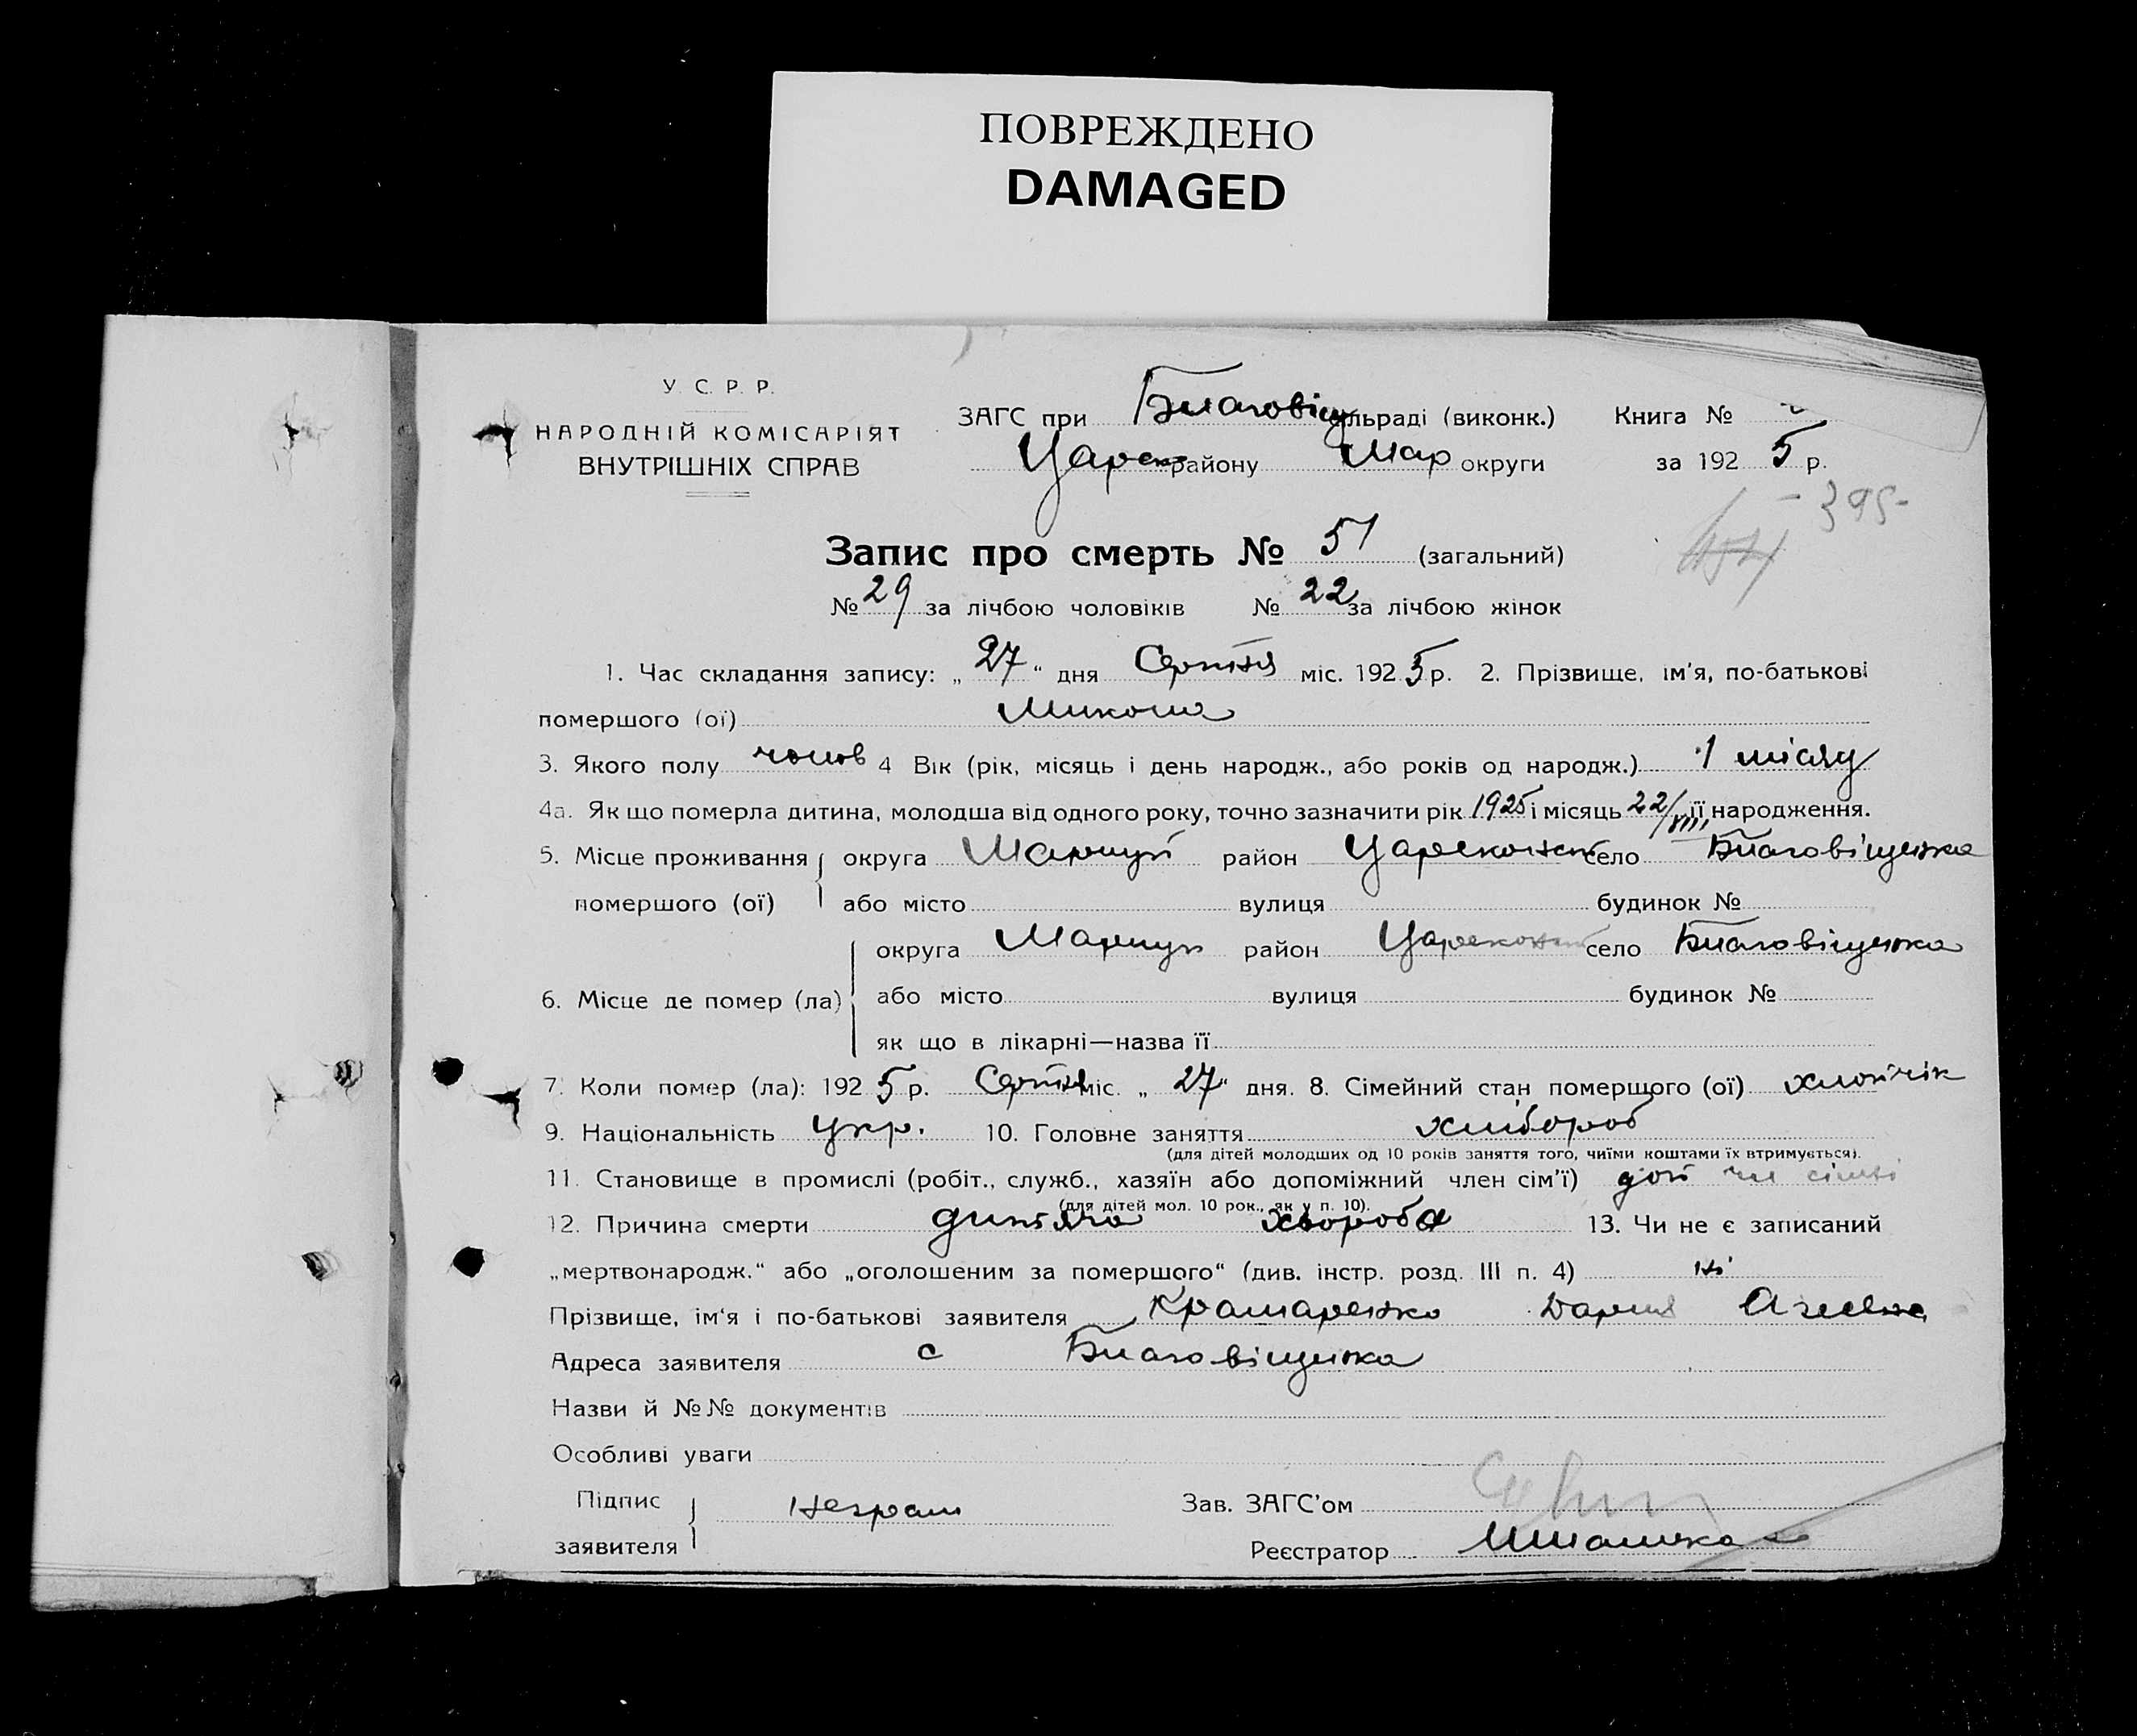 ПОВРЕЖДЕНО
DAMAGED
У. С. Р. Р.
НАРОДНІЙ КОМІСАРІЯТ
ВНУТРІШНІХ СПРАВ
ЗАГС при Благовіщ ільраді (виконк.) Книга №
Царек району Мар округи за 1925 р.
- 395-
Запис про смерть № 51 (загальний)
№ 29 за лічбою чоловіків № 22 за лічбою жінок
1. Час складання запису: „27“ дня Серпня міс. 1925 р. 2. Прізвище, ім'я, по-батькові
помершого (ої) Микола
3. Якого полу чолов 4 Вік (рік, місяць і день народж., або років од народж.) 1 місяц
4а. Як що померла дитина, молодша від одного року, точно зазначити рік 1925 і місяць 22/VIII її народження.
5. Місце проживання округа Маріуп район Царекон село Благовіщенка
помершого (ої) або місто вулиця будинок №
округа Маріуп район Царекон село Благовіщенка
6. Місце де помер (ла) або місто вулиця будинок №
як що в лікарні—назва її
7. Коли помер (ла): 1925 р. Серпня міс. „27“ дня. 8. Сімейний стан померщого (ої) хлопчік
9. Національність укр. 10. Головне заняття хлібороб
(для дітей молодших од 10 років заняття того, чиїми коштами їх втримується).
11. Становище в промислі (робіт., служб., хазяїн або допоміжний член сім'ї) доп чл сімі
(для дітей мол. 10 рок., як у п. 10).
12. Причина смерти дитяча хвороба 13. Чи не є записаний
„мертвонародж.“ або „оголошеним за помершого“ (див. інстр. розд. III п. 4) ні
Прізвище, ім'я і по-батькові заявителя Крамаренко Дария
Адреса заявителя с Благовіщенка
Назви й №№ документів
Особливі уваги
Підпис неграм Зав. ЗАГС'ом
заявителя Реєстратор